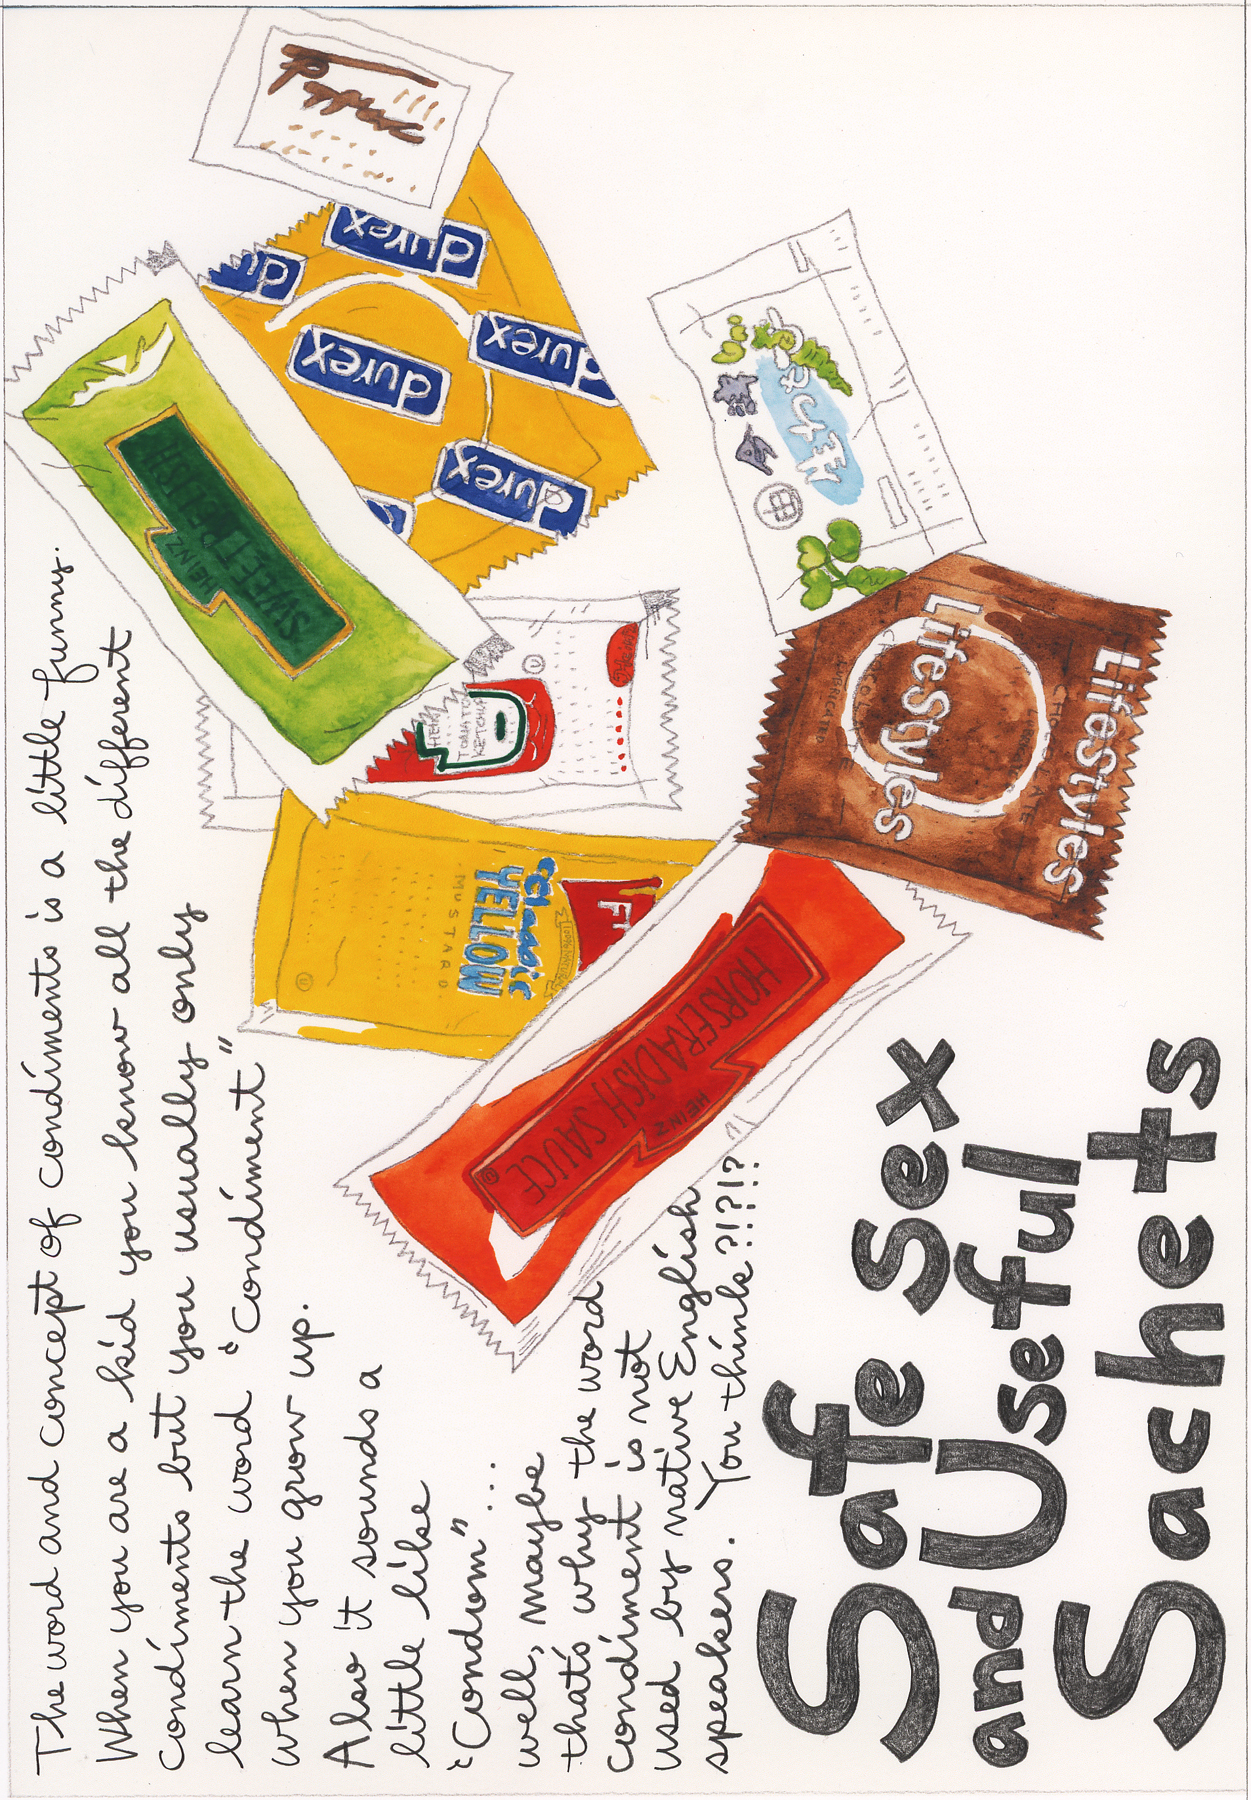 The word and concept of condiments is a little funny.
When you are a kid you know all the different
condiments but you usually only
learn the word "Condiment"
when you grow up.
Also it sounds a
little like
"Condom"...
well, maybe
that's why the word
condiment is not
used by native English
speakers. You think?!?!?!
Safe Sex
and Useful
Sachets
durex
durex
durex
durex
du
HEINZ
SWEET RELISH
HEINZ
TOMATO
KETCHUP
Classic
YELLOW
MUSTARD
100% NATURAL
HORSERADISH SAUCE
HEINZ
LifeStyles
CHOCOLATE
LUBRICATED
LifeStyles
Pepper